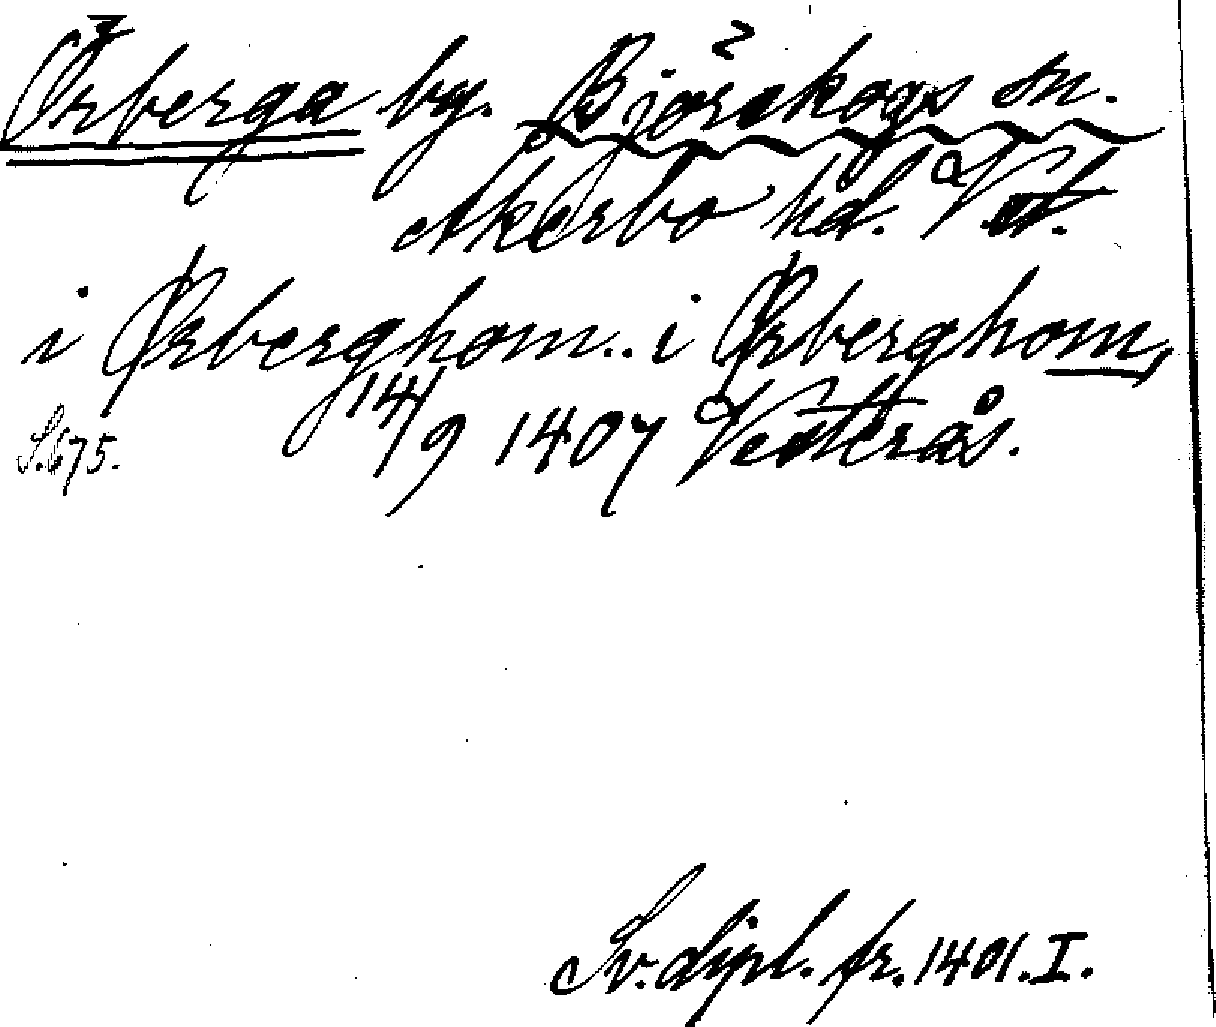 Örberga by. Björskogs sn.
Åkerbo hd. Vstl.
i Ørberghom.. i Ørberghom,
S.675. 14/9 1407 Vesterås.
Sv. dipl. fr. 1401. I.